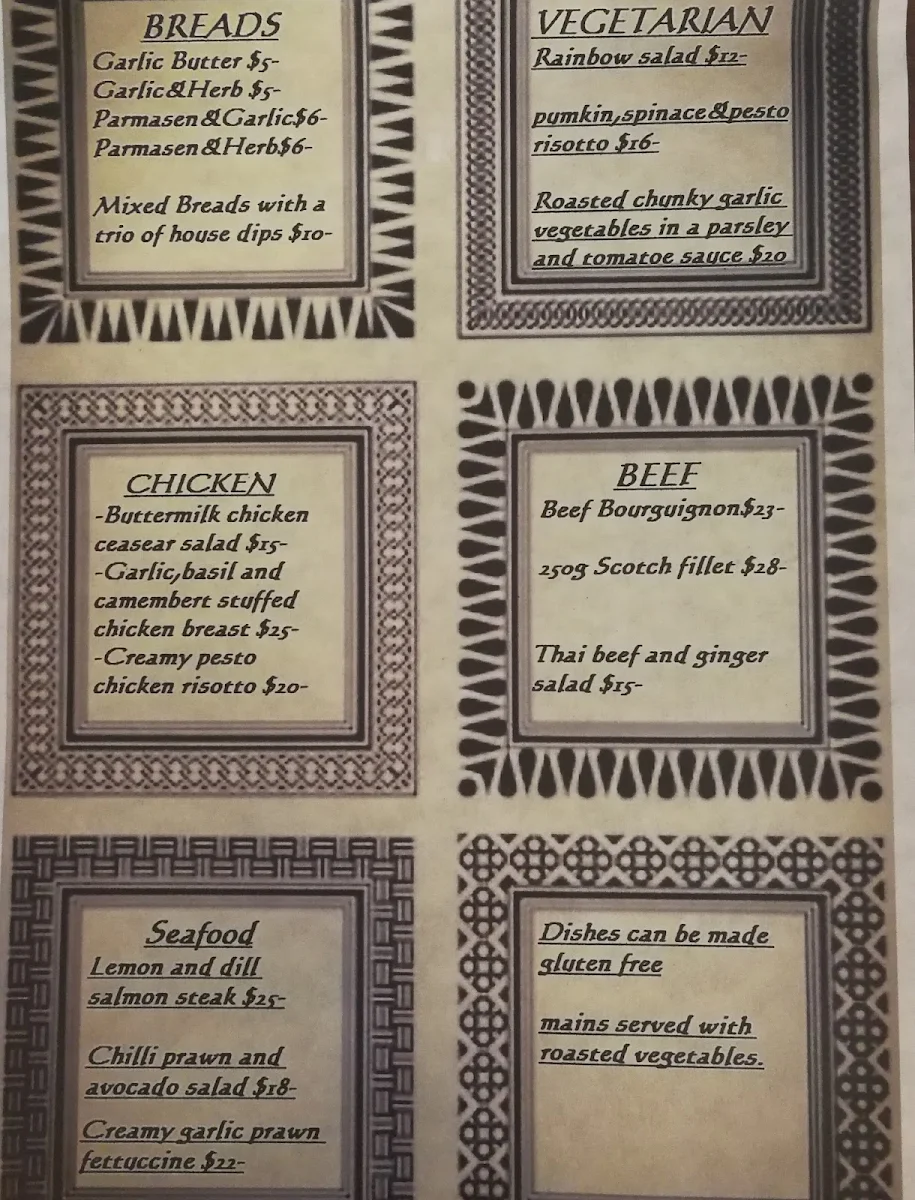 BREADS
Garlic Butter $5-
Garlic&Herb $5-
Parmasen&Garlic$6-
Parmasen&Herb$6-
Mixed Breads with a
trio of house dips $10-
VEGETARIAN
Rainbow salad $12-
pumkin,spinace&pesto
risotto $16-
Roasted chunky garlic
vegetables in a parsley
and tomatoe sauce $20
CHICKEN
-Buttermilk chicken
ceasear salad $15-
-Garlic,basil and
camembert stuffed
chicken breast $25-
-Creamy pesto
chicken risotto $20-
BEEF
Beef Bourguignon$23-
250g Scotch fillet $28-
Thai beef and ginger
salad $15-
Seafood
Lemon and dill
salmon steak $25-
Chilli prawn and
avocado salad $18-
Creamy garlic prawn
fettuccine $22-
Dishes can be made
gluten free
mains served with
roasted vegetables.